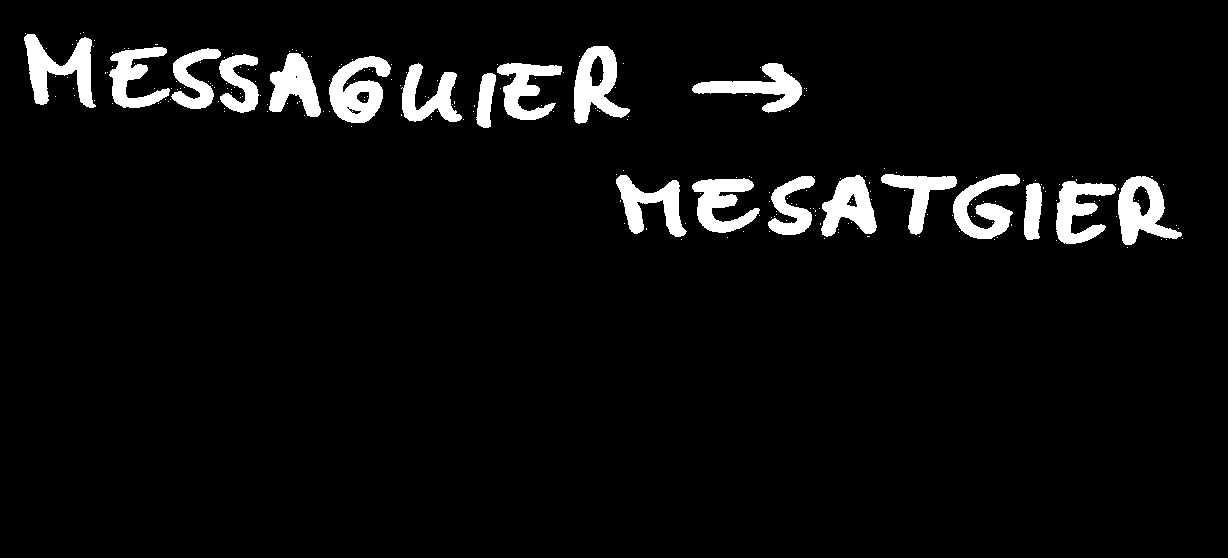 MESSAGUIER →
MESATGIER